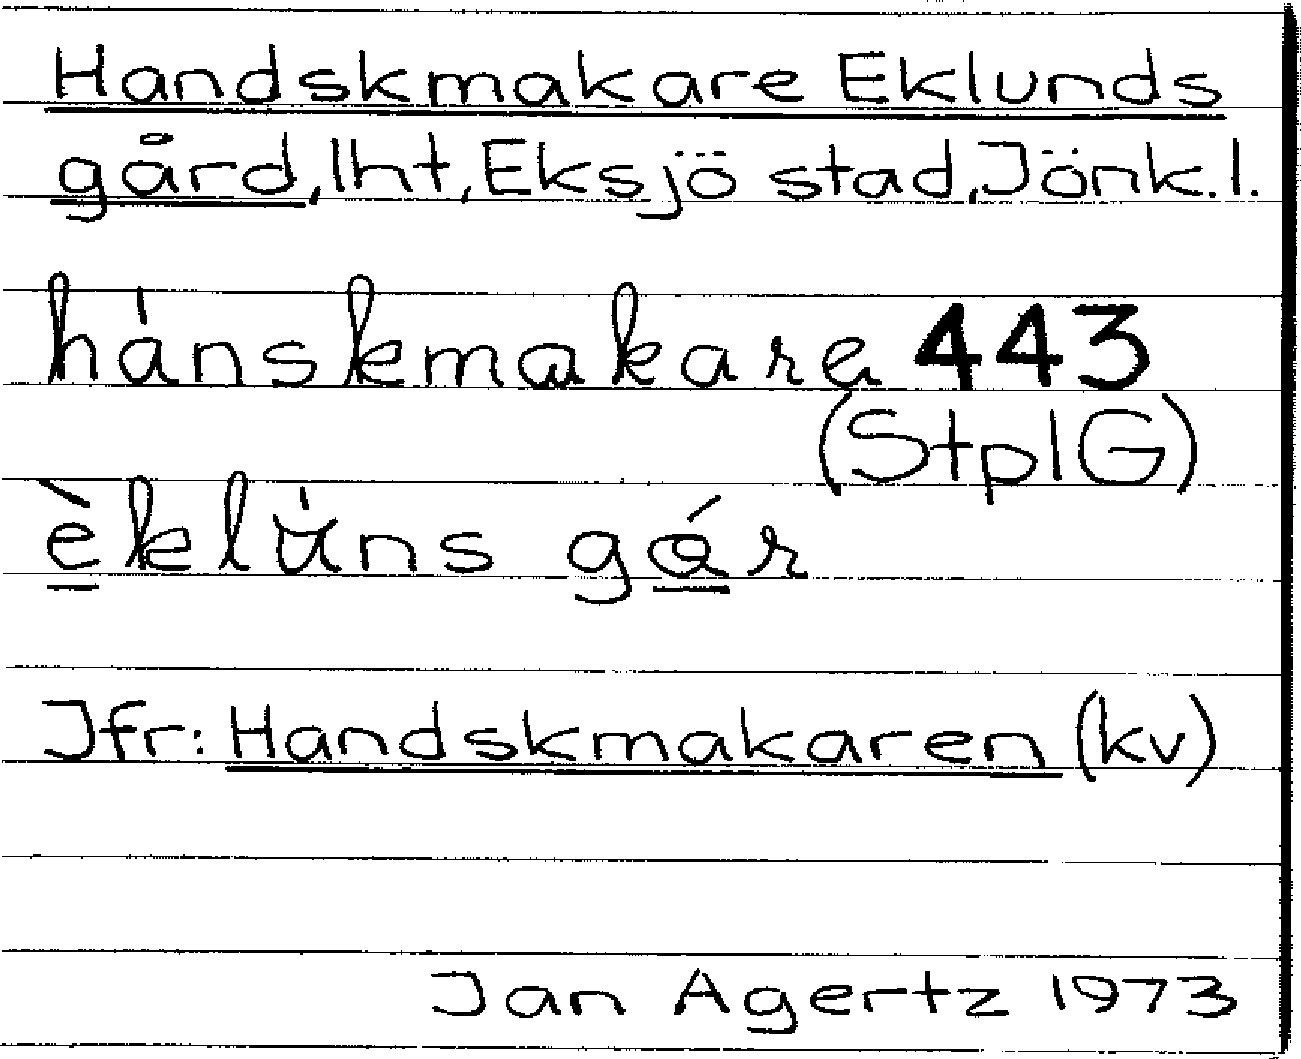 Handskmakare Eklunds
gård, lht, Eksjö stad, Jönk.l.
hánskmakare 443
(StplG)
èklùns gǻr
Jfr: Handskmakaren (kv)
Jan Agertz 1973